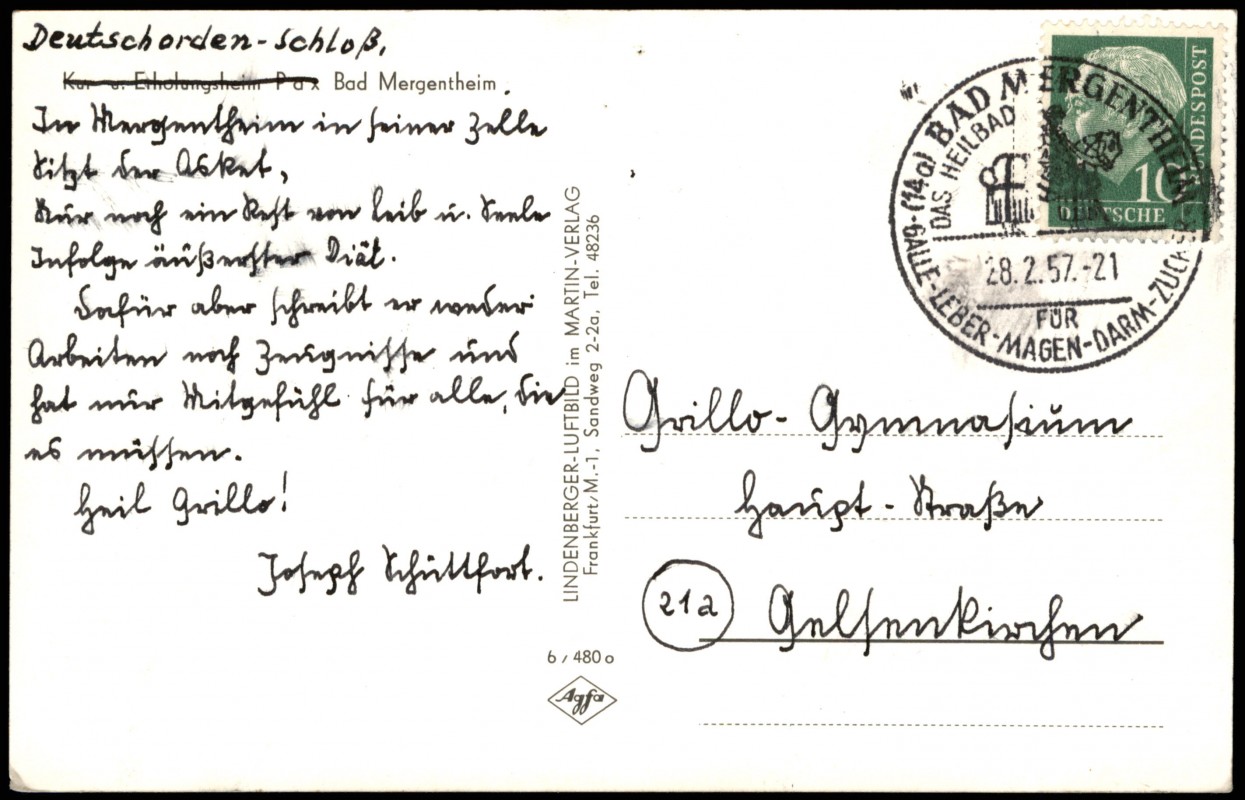 Deutschorden-Schloß,
Kur- u. Erholungsheim Pax Bad Mergentheim
In Mergentheim in seiner Zelle
Sitzt der Asket,
Nur noch ein Rest von Leib u. Seele
Infolge äußerster Diät.
Dafür aber schreibt er weder
Arbeiten noch Zeugnisse und
hat nur Mitgefühl für alle, die
es müssen.
Heil Grillo!
Joseph Schüttfort.
LINDENBERGER-LUFTBILD im MARTIN-VERLAG
Frankfurt/M.-1, Sandweg 2-2a, Tel. 48236
6/480 o
Agfa
(14a) BAD MERGENTHEIM
DAS HEILBAD
28.2.57.-21
FÜR
GALLE-LEBER-MAGEN-DARM-ZUCK
DEUTSCHE
BUNDESPOST
10
Grillo-Gymnasium
Haupt-Straße
21a Gelsenkirchen